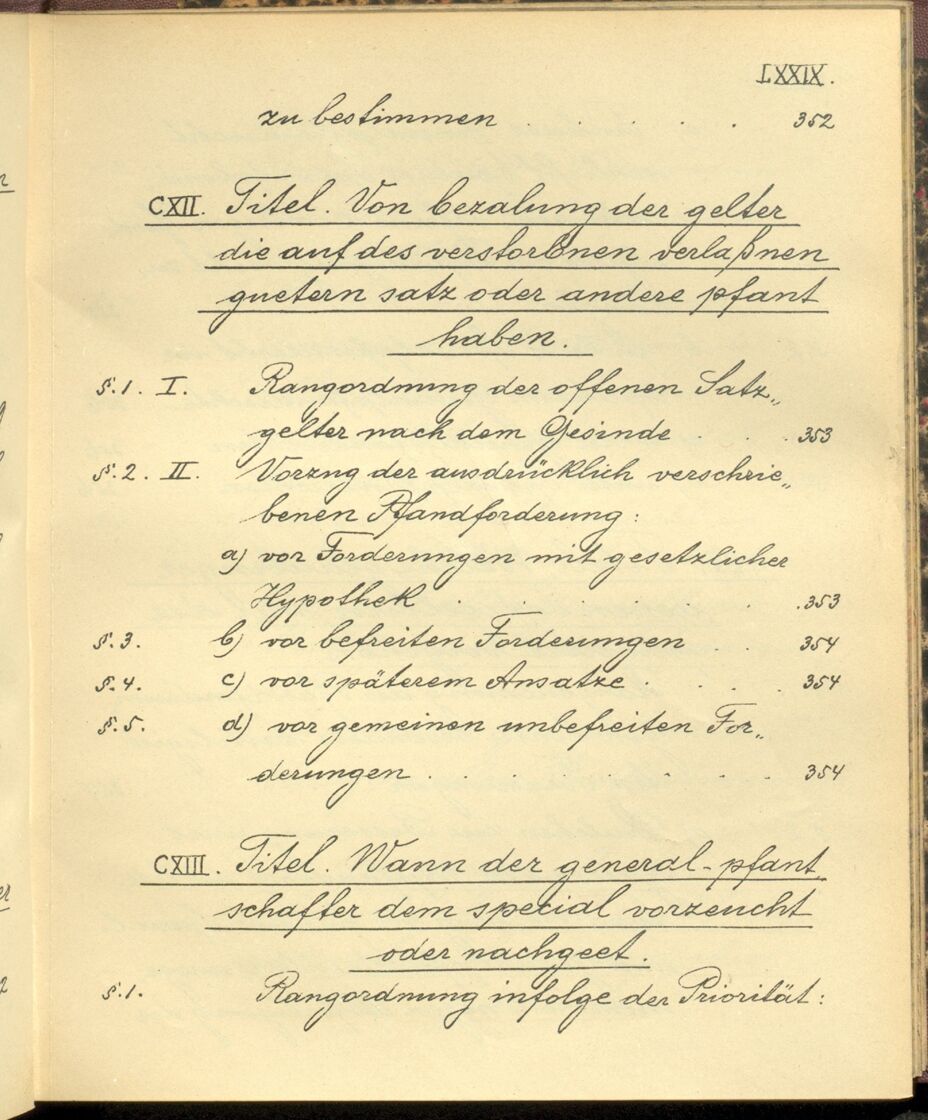 LXXIX.
zu bestimmen . . . . . 352
CXII. Titel. Von bezalung der gelter
die auf des verstorbnen verlaßnen
guetern satz oder andere pfant
haben.
§.1. I. Rangordnung der offenen Satz„
gelter nach dem Gesinde . . . 353
§.2. II. Vorzug der ausdrücklich verschrie„
benen Pfandforderung:
a) vor Forderungen mit gesetzlicher
Hypothek . . . . . 353
§.3. b) vor befreiten Forderungen . . 354
§.4. c) vor späterem Ansatze . . . . 354
§.5. d) vor gemeinen unbefreiten For„
derungen . . . . . . . 354
CXIII. Titel. Wann der general-pfant
schaffer dem special vorzeucht
oder nachgeet.
§.1. Rangordnung infolge der Priorität: